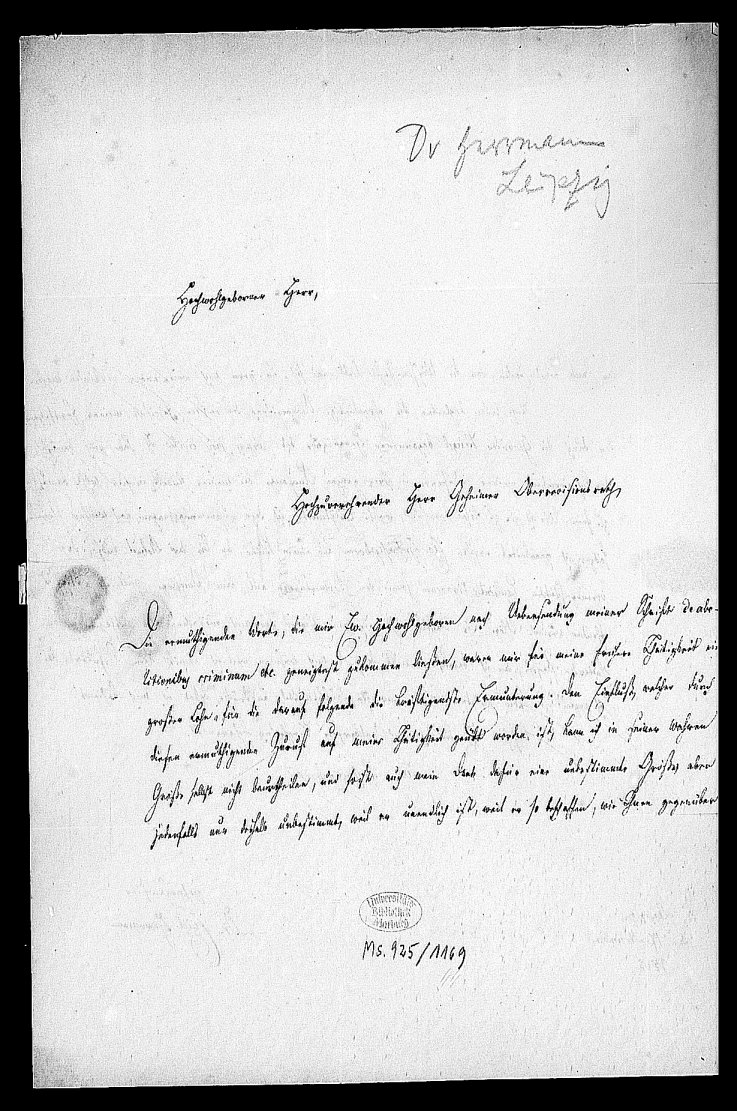 Dr Herrmann
Leipzig
Hochwohlgeborner Herr,
Hochzuverehrender Herr Geheimer Oberrevisionsrath
Die ermuthigenden Worte, die mir Ew. Hochwohlgeboren nach Uebersendung meiner Schrift de abo-
litionibus criminum etc. geneigtest zukommen ließen, waren mir für meine frühere Thätigkeit ein
großer Lohn, für die darauf folgende die kräftigendste Ermunterung. Den Einfluß, welcher durch
diesen ermuthigenden Zuruf auf meine Thätigkeit geübt worden ist, kann ich in seiner wahren
Größe selbst nicht beurtheilen, und so ist auch mein Dank dafür eine unbestimmte Größe, aber
jedenfalls nur deshalb unbestimmt, weil er unendlich ist, weil er so beschaffen, wie Ihnen gegenüber
Universitäts
Bibliothek
Marburg
Ms. 925/1169